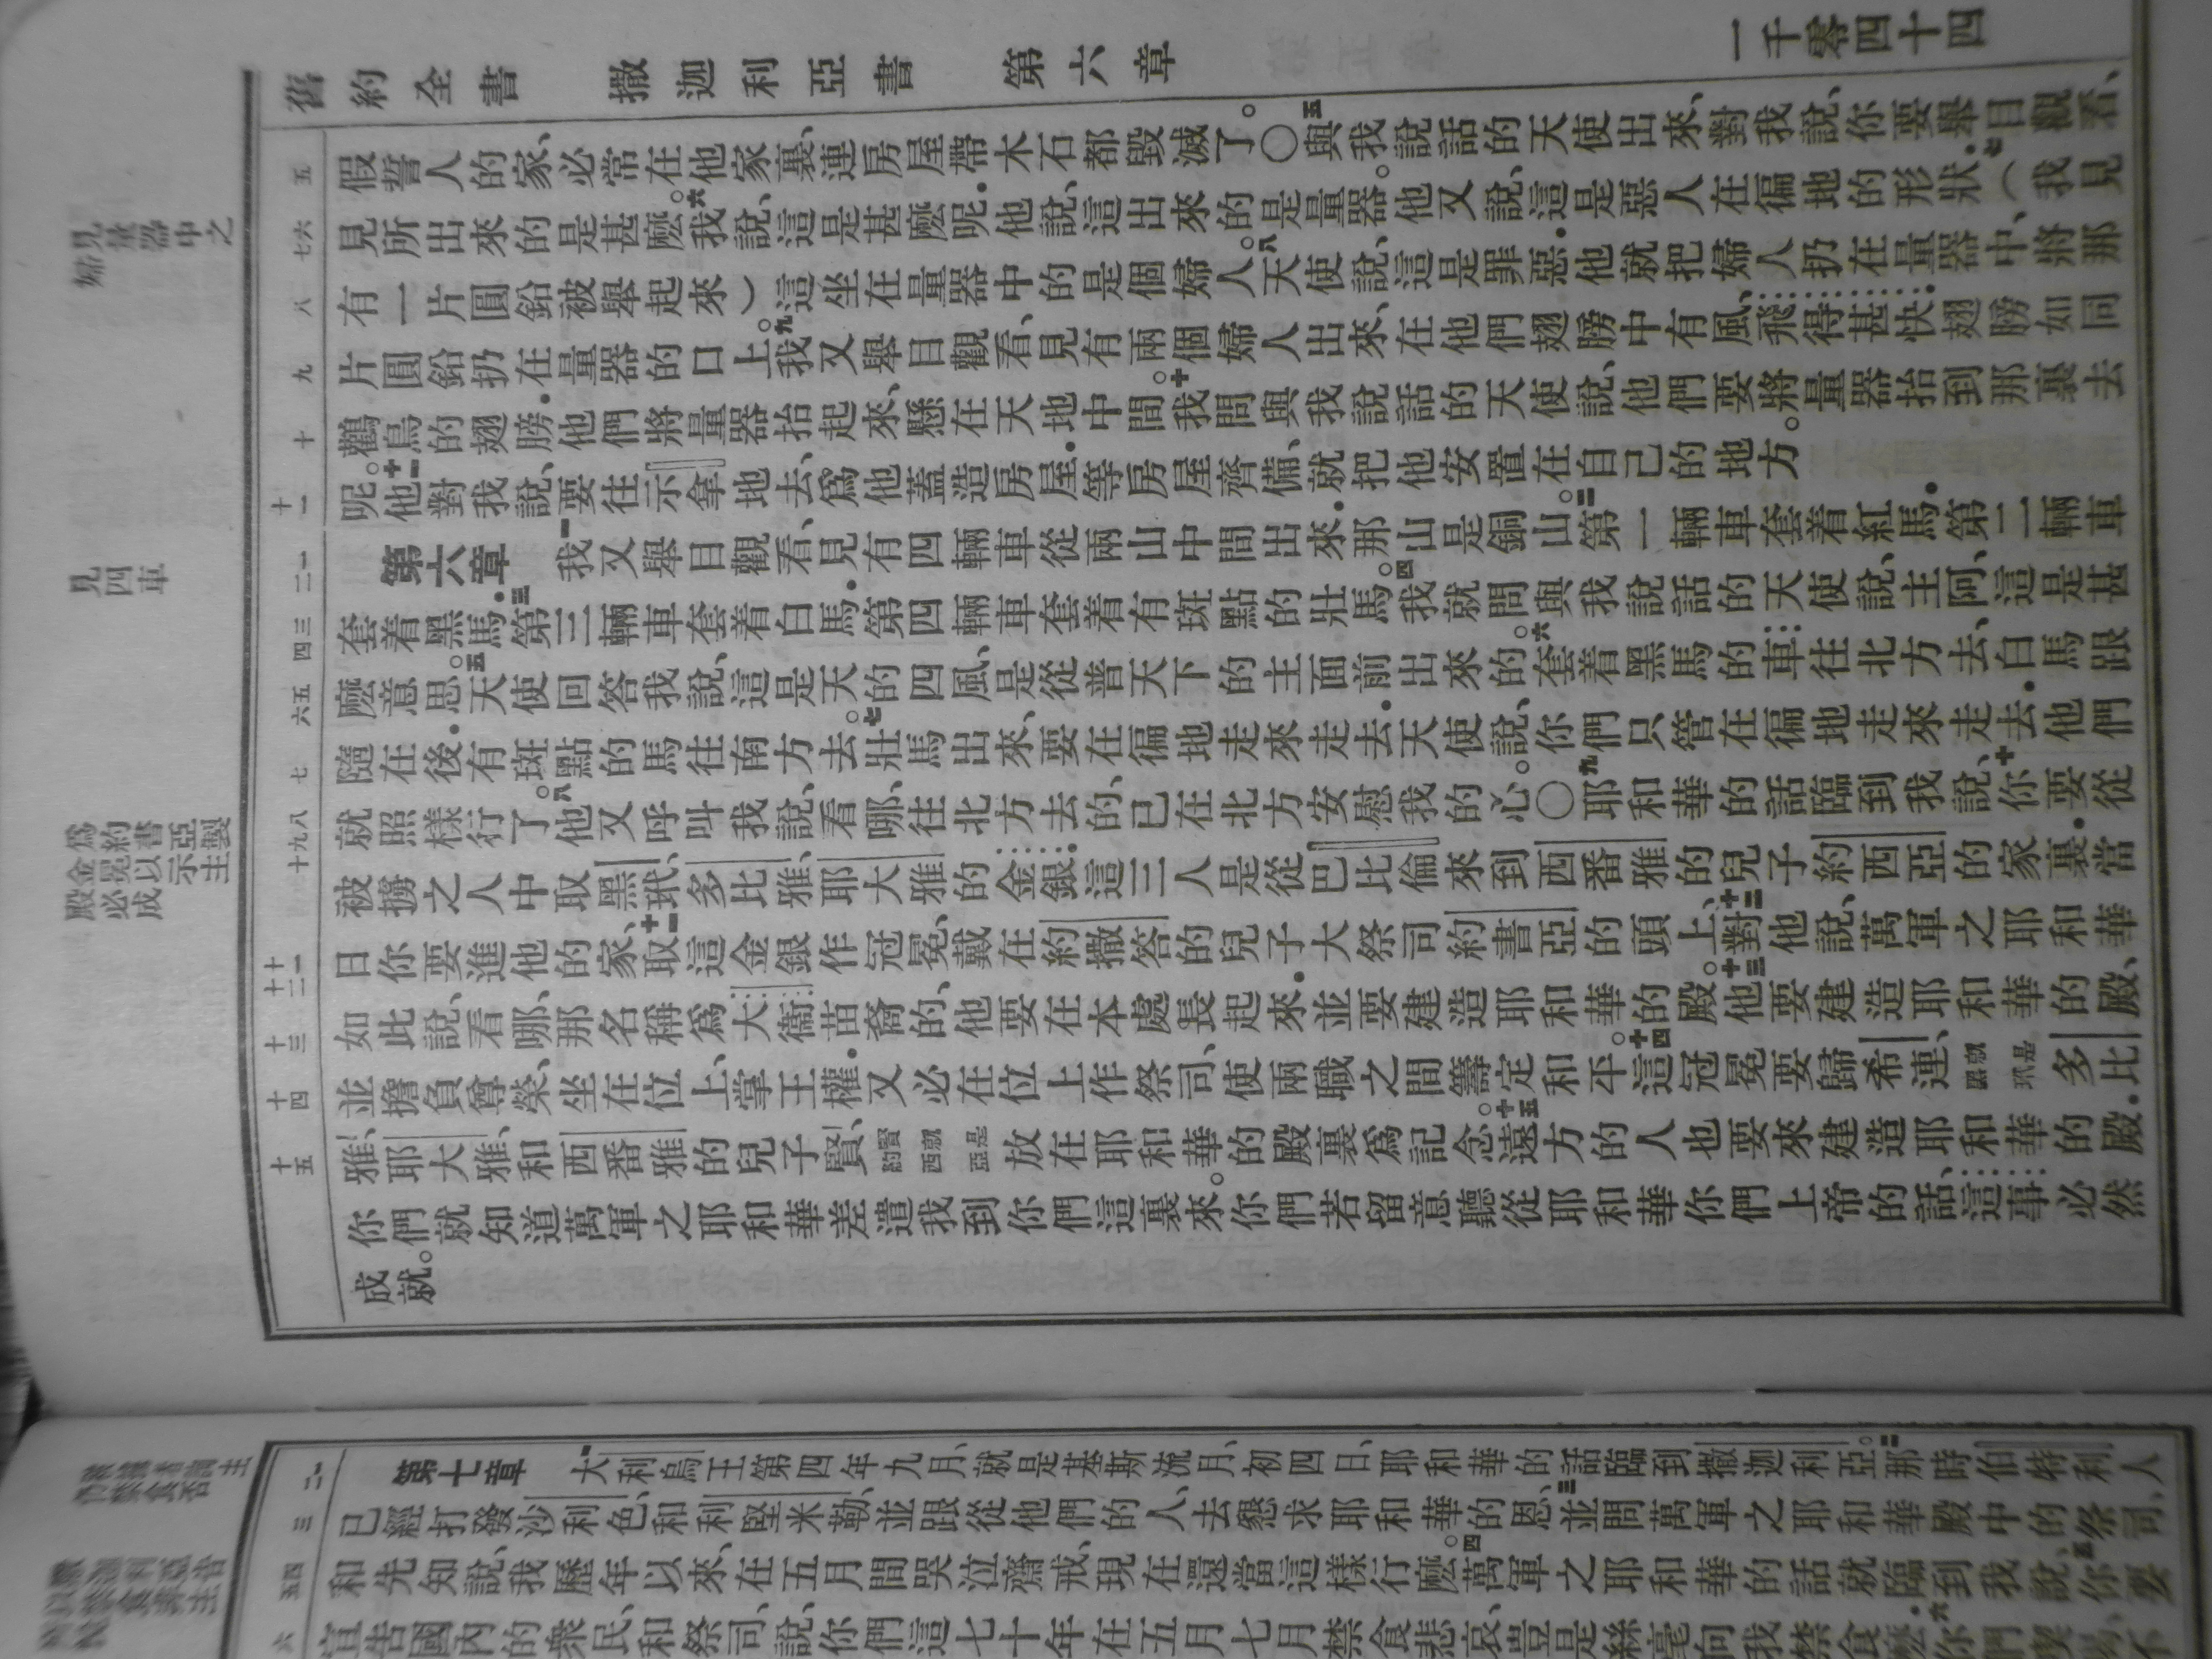 舊約全書 撒迦利亞書 第六章 一千零四十四
見量器中之婦
五 假誓人的家、必常在他家裏、連房屋帶木石都毀滅了。〇五與我說話的天使出來、對我說、你要舉目觀看、
七六 見所出來的是甚麼。六我說、這是甚麼呢.他說、這出來的是量器。他又說、這是惡人在徧地的形狀.七（我見
八 有一片圓鉛被舉起來）這坐在量器中的是個婦人。八天使說、這是罪惡.他就把婦人扔在量器中、將那
九 片圓鉛扔在量器的口上。九我又舉目觀看、見有兩個婦人出來、在他們翅膀中有風、飛得甚快.翅膀如同
十 鸛鳥的翅膀.他們將量器抬起來、懸在天地中間。十我問與我說話的天使說、他們要將量器抬到那裏去
十一 呢。十一他對我說、要往示拿地去、爲他蓋造房屋.等房屋齊備、就把他安置在自己的地方。
見四車
一二 第六章 一我又舉目觀看、見有四輛車從兩山中間出來.那山是銅山。二第一輛車套着紅馬.第二輛車
三四 套着黑馬.三第三輛車套着白馬.第四輛車套着有斑點的壯馬。四我就問與我說話的天使說、主阿、這是甚
五六 麼意思。五天使回答我說、這是天的四風、是從普天下的主面前出來的。六套着黑馬的車往北方去、白馬跟
七 隨在後.有斑點的馬往南方去。七壯馬出來、要在徧地走來走去.天使說、你們只管在徧地走來走去.他們
八九十 就照樣行了。八他又呼叫我說、看哪、往北方去的、已在北方安慰我的心。〇九耶和華的話臨到我說、十你要從
被擄之人中取黑玳、多比雅、耶大雅的金銀.這三人是從巴比倫來到西番雅的兒子約西亞的家裏.當
十一十二 日你要進他的家、十一取這金銀作冠冕、戴在約撒答的兒子大祭司約書亞的頭上、十二對他說、萬軍之耶和華
十三 如此說、看哪、那名稱爲大衞苗裔的、他要在本處長起來.並要建造耶和華的殿。十三他要建造耶和華的殿、
十四 並擔負尊榮、坐在位上掌王權.又必在位上作祭司、使兩職之間籌定和平。十四這冠冕要歸希連、就是黑玳多比
十五 雅、耶大雅、和西番雅的兒子賢、賢就是約西亞放在耶和華的殿裏爲記念。十五遠方的人也要來建造耶和華的殿.
你們就知道萬軍之耶和華差遣我到你們這裏來。你們若留意聽從耶和華你們上帝的話、這事必然
成就。
一二 第七章 一大利烏王第四年九月、就是基斯流月、初四日、耶和華的話臨到撒迦利亞。二那時伯特利人
三 已經打發沙利色、和利堅米勒、並跟從他們的人、去懇求耶和華的恩、三並問萬軍之耶和華殿中的祭司、
四五 和先知說、我歷年以來、在五月間哭泣齋戒、現在還當這樣行麼。四萬軍之耶和華的話就臨到我說、五你要
六 宣告國內的衆民、和祭司、說、你們這七十年在五月七月禁食悲哀、豈是絲毫向我禁食麼.